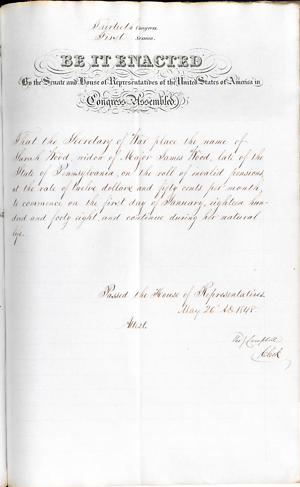 Thirtieth Congress
First Session.
BE IT ENACTED
By the Senate and House of Representatives of the United States of America in
Congress Assembled
That the Secretary of War place the name of
Sarah Wood, widow of Major James Wood, late of the
State of Pennsylvania, on the roll of invalid pensions,
at the rate of twelve dollars and fifty cents per month,
to commence on the first day of January, eighteen hun-
dred and forty eight, and continue during her natural
life.
Passed the House of Representatives
May 26 AD. 1848.
Attest.
Tho J Campbell
Clerk